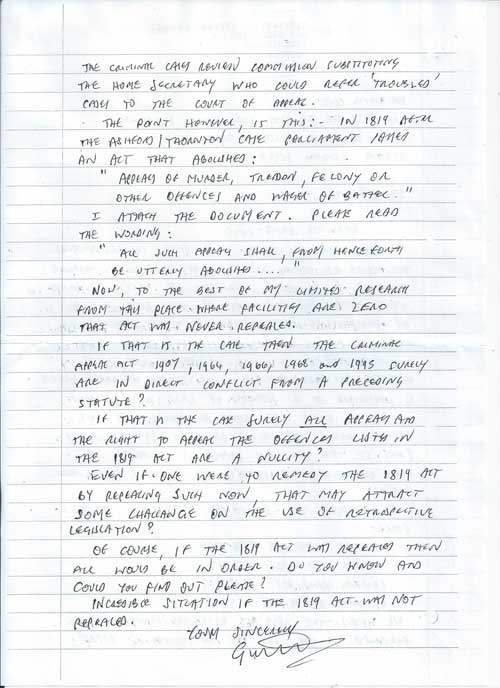 THE CRIMINAL CASES REVIEW COMMISSION SUBSTITUTING
THE HOME SECRETARY WHO COULD REFER 'TROUBLED'
CASES TO THE COURT OF APPEAL.
THE POINT HOWEVER, IS THIS:- IN 1819 AFTER
THE ASHFORD/THORNTON CASE PARLIAMENT PASSED
AN ACT THAT ABOLISHED:
" APPEALS OF MURDER, TREASON, FELONY OR
OTHER OFFENCES AND WAGER OF BATTEL. "
I ATTACH THE DOCUMENT. PLEASE READ
THE WORDING:
" ALL SUCH APPEALS SHALL, FROM HENCEFORTH
BE UTTERLY ABOLISHED .... "
NOW, TO THE BEST OF MY LIMITED RESEARCH
FROM THIS PLACE WHERE FACILITIES ARE ZERO
THAT ACT WAS NEVER REPEALED.
IF THAT IS THE CASE THEN THE CRIMINAL
APPEAL ACT 1907, 1964, 1966, 1968 and 1995 SURELY
ARE IN DIRECT CONFLICT FROM A PRECEDING
STATUTE?
IF THAT IS THE CASE SURELY ALL APPEALS AND
THE RIGHT TO APPEAL THE OFFENCES LISTED IN
THE 1819 ACT ARE A NULLITY?
EVEN IF ONE WERE TO REMEDY THE 1819 ACT
BY REPEALING SUCH NOW, THAT MAY ATTRACT
SOME CHALLANGE ON THE USE OF RETROSPECTIVE
LEGISLATION?
OF COURSE, IF THE 1819 ACT WAS REPEALED THEN
ALL WOULD BE IN ORDER. DO YOU KNOW AND
COULD YOU FIND OUT PLEASE?
INCREDIBLE SITUATION IF THE 1819 ACT WAS NOT
REPEALED.
YOURS SINCERELY